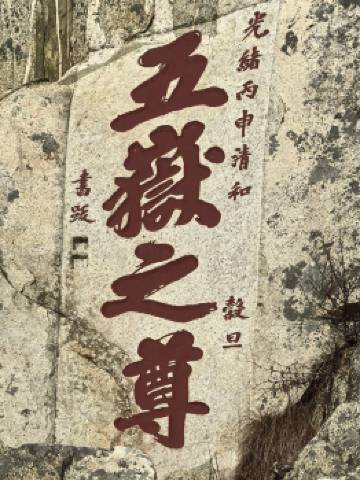 光緒丙申清和 穀旦
五嶽之尊
書題